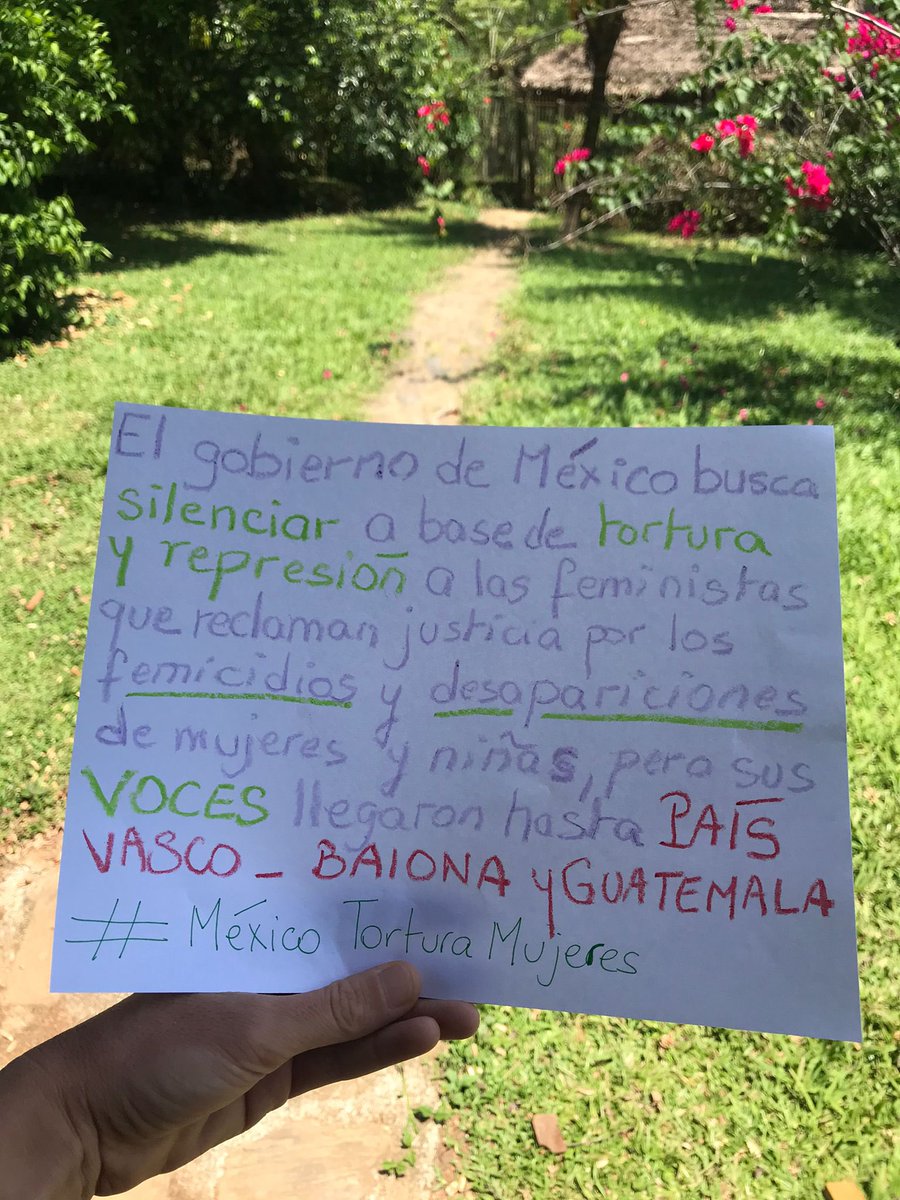 El gobierno de México busca
silenciar a base de tortura
y represión a las feministas
que reclaman justicia por los
femicidios y desapariciones
de mujeres y niñas, pero sus
VOCES llegaron hasta PAÍS
VASCO - BAIONA y GUATEMALA
# México Tortura Mujeres